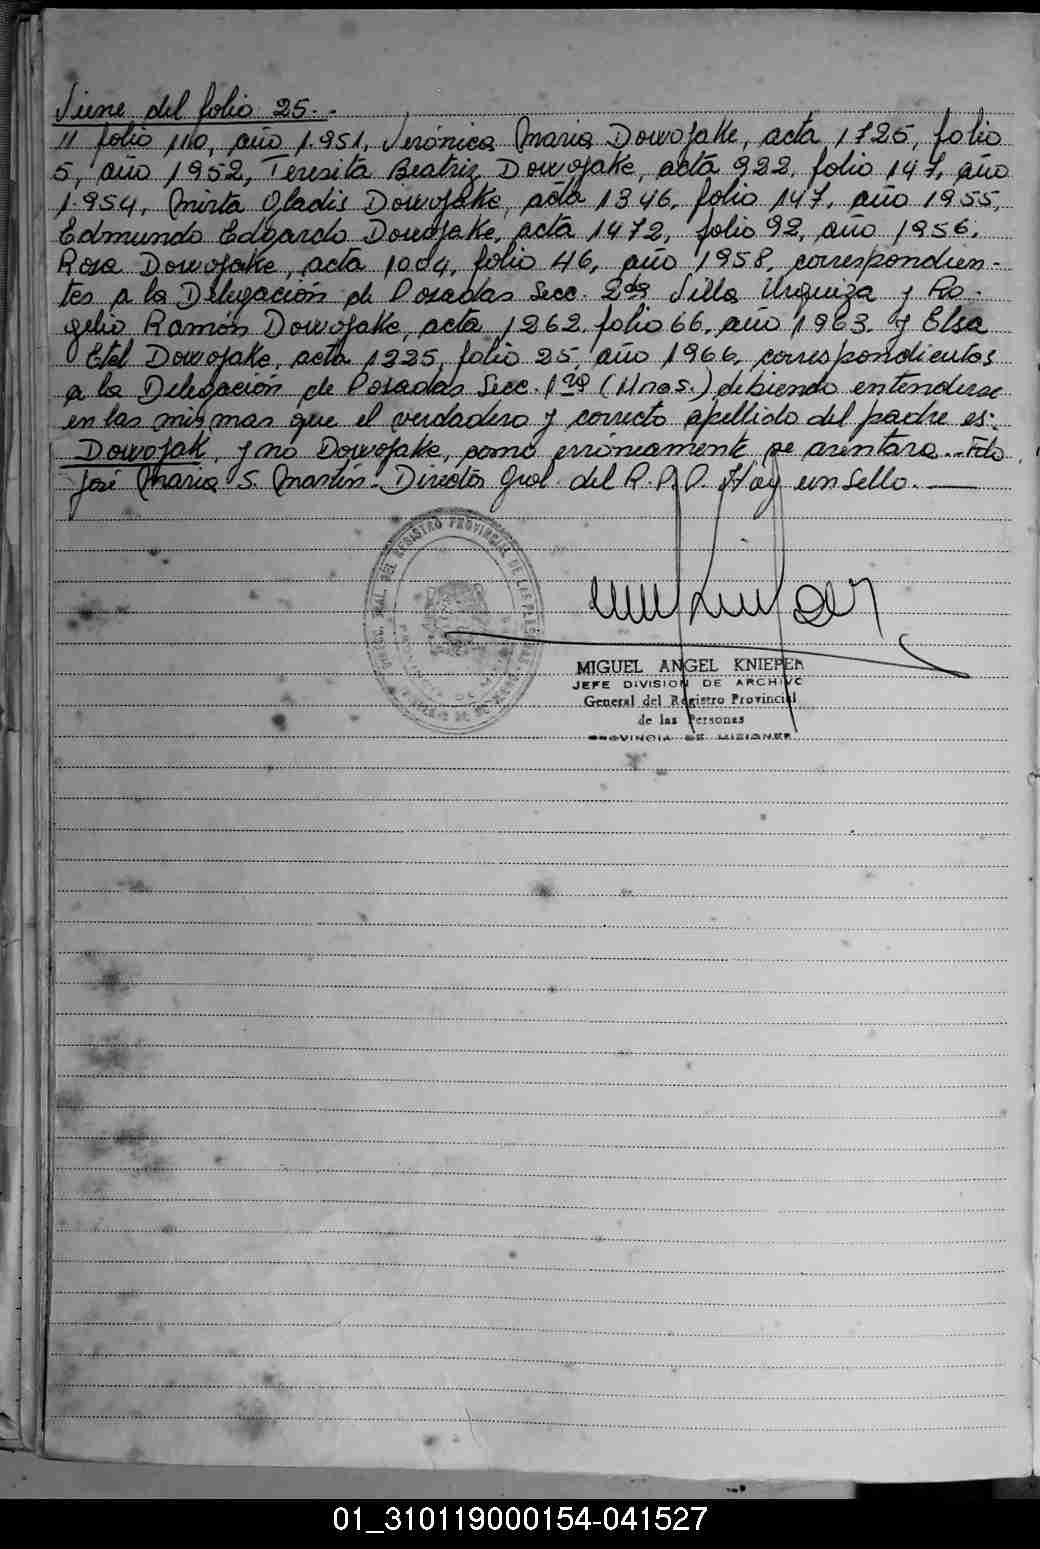 Viene del folio 25.-
11 folio 110, año 1.951, Verónica Maria Dowojake, acta 1725, folio
5, año 1952, Teresita Beatriz Dowojake, acta 922, folio 147, año
1.954, Mirta Gladis Dowojake, acta 1346, folio 147, año 1955,
Edmundo Edgardo Dowojake, acta 1472, folio 92, año 1956,
Rosa Dowojake, acta 1004, folio 46, año 1958, correspondien-
tes a la Delegación de Posadas Secc. 2da Villa Urquiza y Ro-
gelio Ramón Dowojake, acta 1262, folio 66, año 1963, y Elsa
Etel Dowojake, acta 1225, folio 25, año 1966, correspondientes
a la Delegación de Posadas Secc. 1ra (Mnes.) debiendo entenderse
en las mismas que el verdadero y correcto apellido del padre es:
Dowojak, y no Dowojake, como erróneamente se asentara.- Fdo.
José Maria S. Martín- Director Gral. del R.P.P. Hay un Sello.—
MIGUEL ANGEL KNIEPER
JEFE DIVISION DE ARCHIVO
General del Registro Provincial
de las Personas
PROVINCIA DE MISIONES
01_310119000154-041527